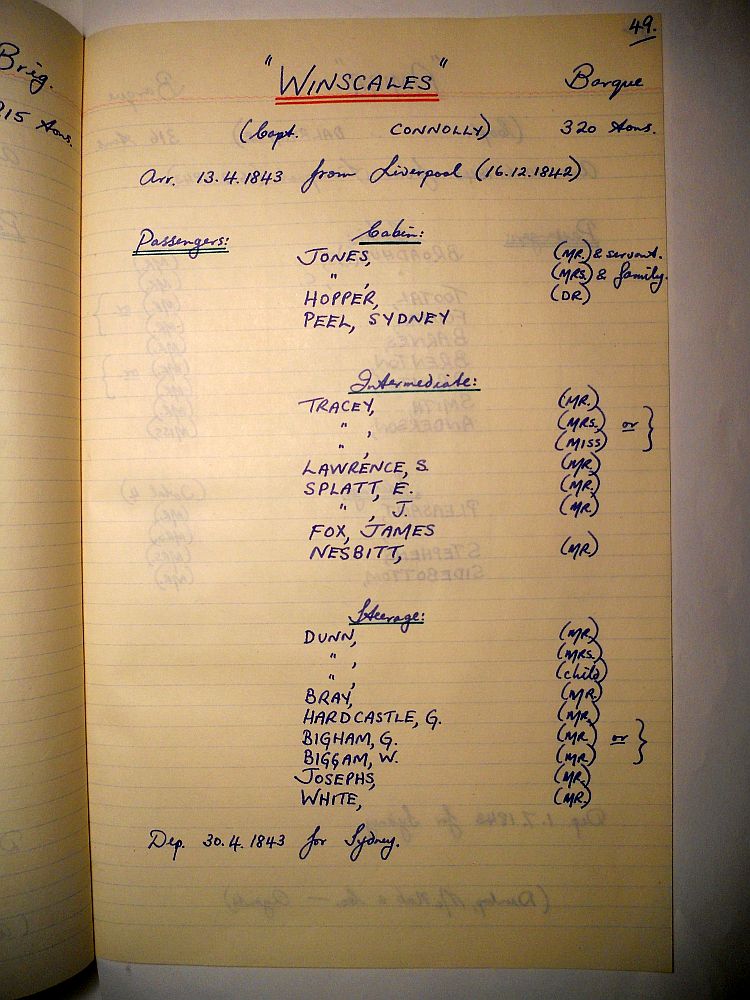 Brig.
915 tons.
49.
"WINSCALES" Barque
(Capt. CONNOLLY) 320 tons.
Arr. 13.4.1843 from Liverpool (16.12.1842)
Passengers: Cabin:
JONES, (MR.) & servant.
" , (MRS.) & family.
HOPPER, (DR)
PEEL, SYDNEY
Intermediate:
TRACEY, (MR.)
" , (MRS.) or }
" , (MISS)
LAWRENCE, S. (MR.)
SPLATT, E. (MR.)
" , J. (MR)
FOX, JAMES
NESBITT, (MR)
Steerage:
DUNN, (MR)
" , (MRS.)
" , (child)
BRAY, (MR.)
HARDCASTLE, G. (MR.)
BIGHAM, G. (MR.) or }
BIGGAM, W. (MR.)
JOSEPHS, (MR.)
WHITE, (MR.)
Dep. 30.4.1843 for Sydney.